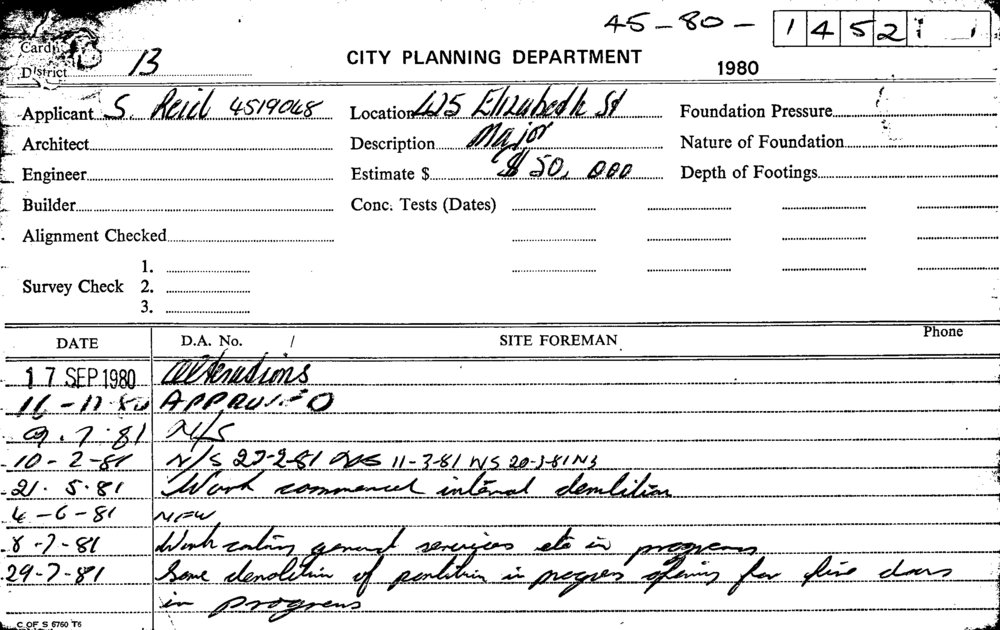 45-80- 1452
Card
District 13
CITY PLANNING DEPARTMENT
1980
Applicant S. Reid 4519048 Location 425 Elizabeth St Foundation Pressure
Architect Description Major Nature of Foundation
Engineer Estimate $ $50,000 Depth of Footings
Builder Conc. Tests (Dates)
Alignment Checked
1.
Survey Check 2.
3.
DATE D.A. No. / SITE FOREMAN Phone
17 SEP 1980 Alterations
11-80 APPROVED
9.7.81 N/S
10-2-81 N/S 27-2-81 11-3-81 NS 20-3-81 NS
21.5.81 Work commenced internal demlition
4-6-81 NFW
8-7-81 Work general services etc in progress
29-7-81 Some demolition of partition in progress opening for fire doors
in progress
C OF S 6760 T6